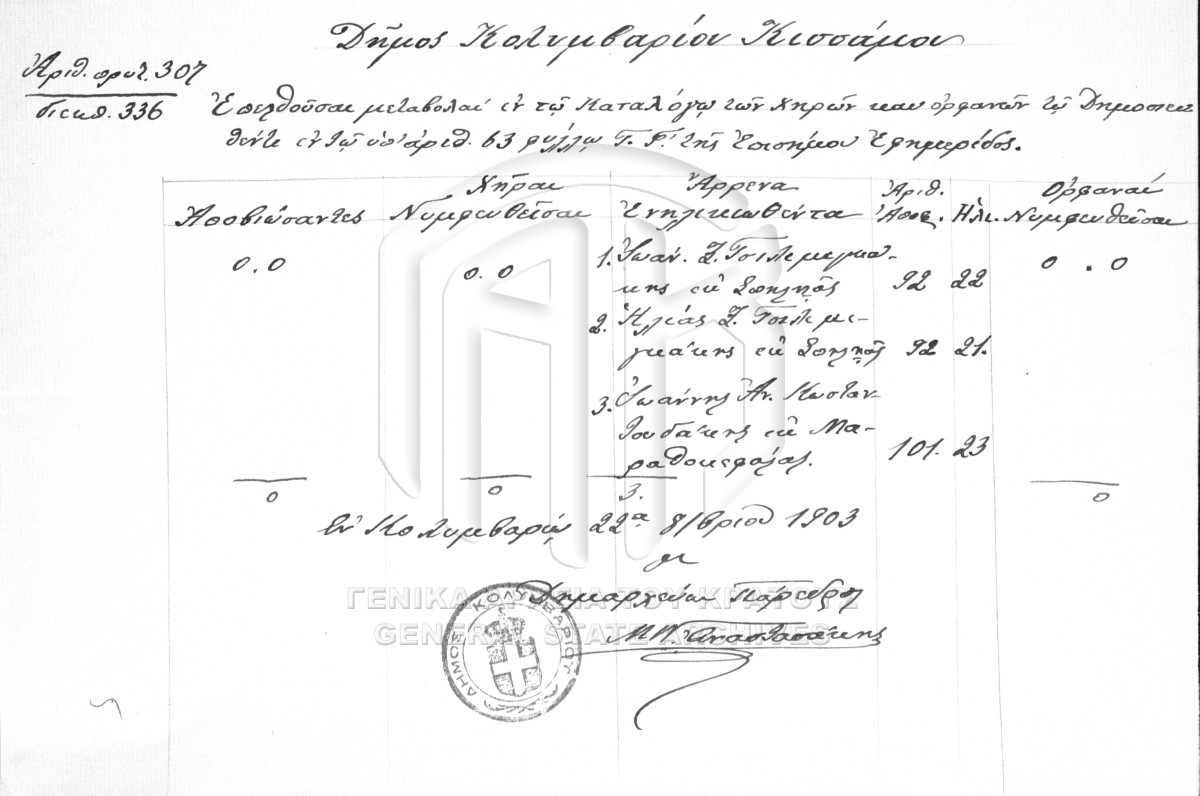 Δῆμος Κολυμβαρίου Κισσάμου
Ἀριθ. πρωτ. 307
διεκπ. 336
Ἐπελθοῦσαι μεταβολαί ἐν τῷ καταλόγῳ τῶν χηρῶν και ὀρφανῶν τῷ δημοσιευ
θέντι ἐν τῷ ὑπ' ἀριθ. 63 φύλλῳ Τ. Γ'. τῆς Ἐπισήμου Ἐφημερίδος.
Ἀποβιώσαντες
Χῆραι
Νυμφευθεῖσαι
Ἄρρενα
Ἐνηλικιωθέντα
Ἀριθ.
Ἀποφ.
Ἡλι.
Ὀρφαναί
Νυμφευθεῖσαι
0.0
0.0
1. Ἰωάν. Σ. Τσιλεμιγκά-
κης ἐκ Σπηλῃᾶς 92 22
0.0
2. Ἠλίας Σ. Τσιλεμι-
γκάκης ἐκ Σπηλῃᾶς 92 21.
3. Ἰωάννης Ἀν. Κωσταν-
τουδάκης ἐκ Μα-
ραθοκεφάλας. 101. 23
0
0
3.
0
Ἐν Κολυμβαρίῳ 22ᾳ 8/βρίου 1903
Δημαρχεύων Πάρεδρος
Μ. Ν. Ἀναστασάκης
ΔΗΜΟΣ ΚΟΛΥΜΒΑΡΙΟΥ
ΓΕΝΙΚΑ ΑΡΧΕΙΑ ΤΟΥ ΚΡΑΤΟΥΣ
GENERAL STATE ARCHIVES